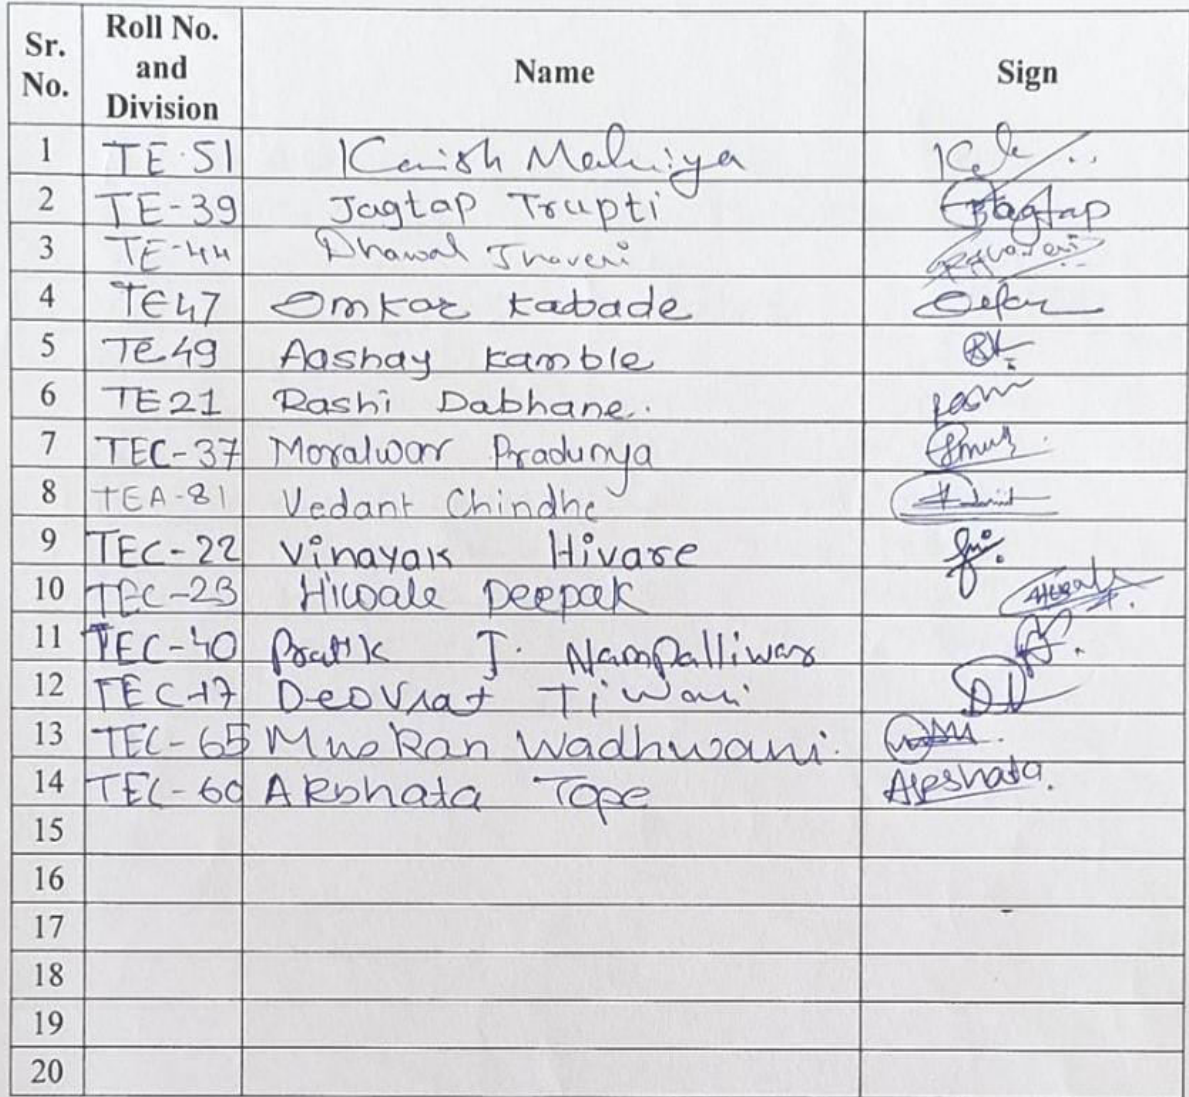 Sr. No. Roll No. and Division Name Sign
1 TE-51 Kanish Mehiya
2 TE-39 Jagtap Trupti Jagtap
3 TE-44 Dhawal Jhaveri
4 TE47 Omkar Kabade
5 TE49 Aashay Kamble
6 TE21 Rashi Dabhane.
7 TEC-37 Moralwar Pradunya
8 TEA-81 Vedant Chindhe
9 TEC-22 Vinayak Hivare
10 TEC-23 Hiwale Deepak
11 TEC-40 Pratik J. Nampalliwar
12 TEC-17 Deovrat Tiwari
13 TEC-65 Muskan Wadhwani.
14 TEC-60 Akshata Tope Akshata.
15
16
17
18
19
20